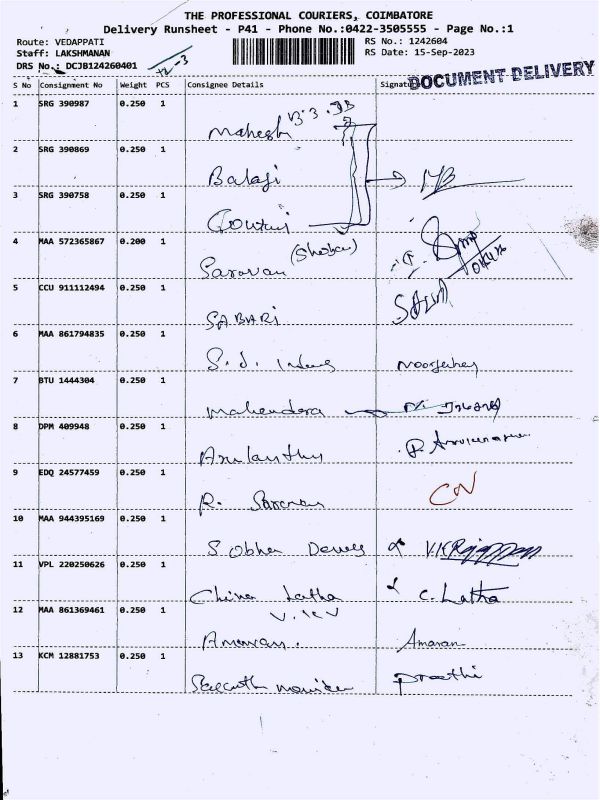 THE PROFESSIONAL COURIERS, COIMBATORE
Delivery Runsheet - P41 - Phone No.:0422-3505555 - Page No.:1
Route: VEDAPPATI RS No.: 1242604
Staff: LAKSHMANAN RS Date: 15-Sep-2023
DRS No.: DCJB124260401
DOCUMENT DELIVERY
S No Consignment No Weight PCS Consignee Details Signature
1 SRG 390987 0.250 1
Mahesh
2 SRG 390869 0.250 1
Balaji
3 SRG 390758 0.250 1
Gowri
4 MAA 572365867 0.200 1
Saravan
5 CCU 911112494 0.250 1
SABARI
6 MAA 861794835 0.250 1
S. J.
7 BTU 1444304 0.250 1
Mahendera
8 DPM 409948 0.250 1
9 EDQ 24577459 0.250 1
R.
10 MAA 944395169 0.250 1
Sobha V.K Rajappan
11 VPL 220250626 0.250 1
China Latha C. Latha
12 MAA 861369461 0.250 1
Amaran
13 KCM 12881753 0.250 1
Preethi